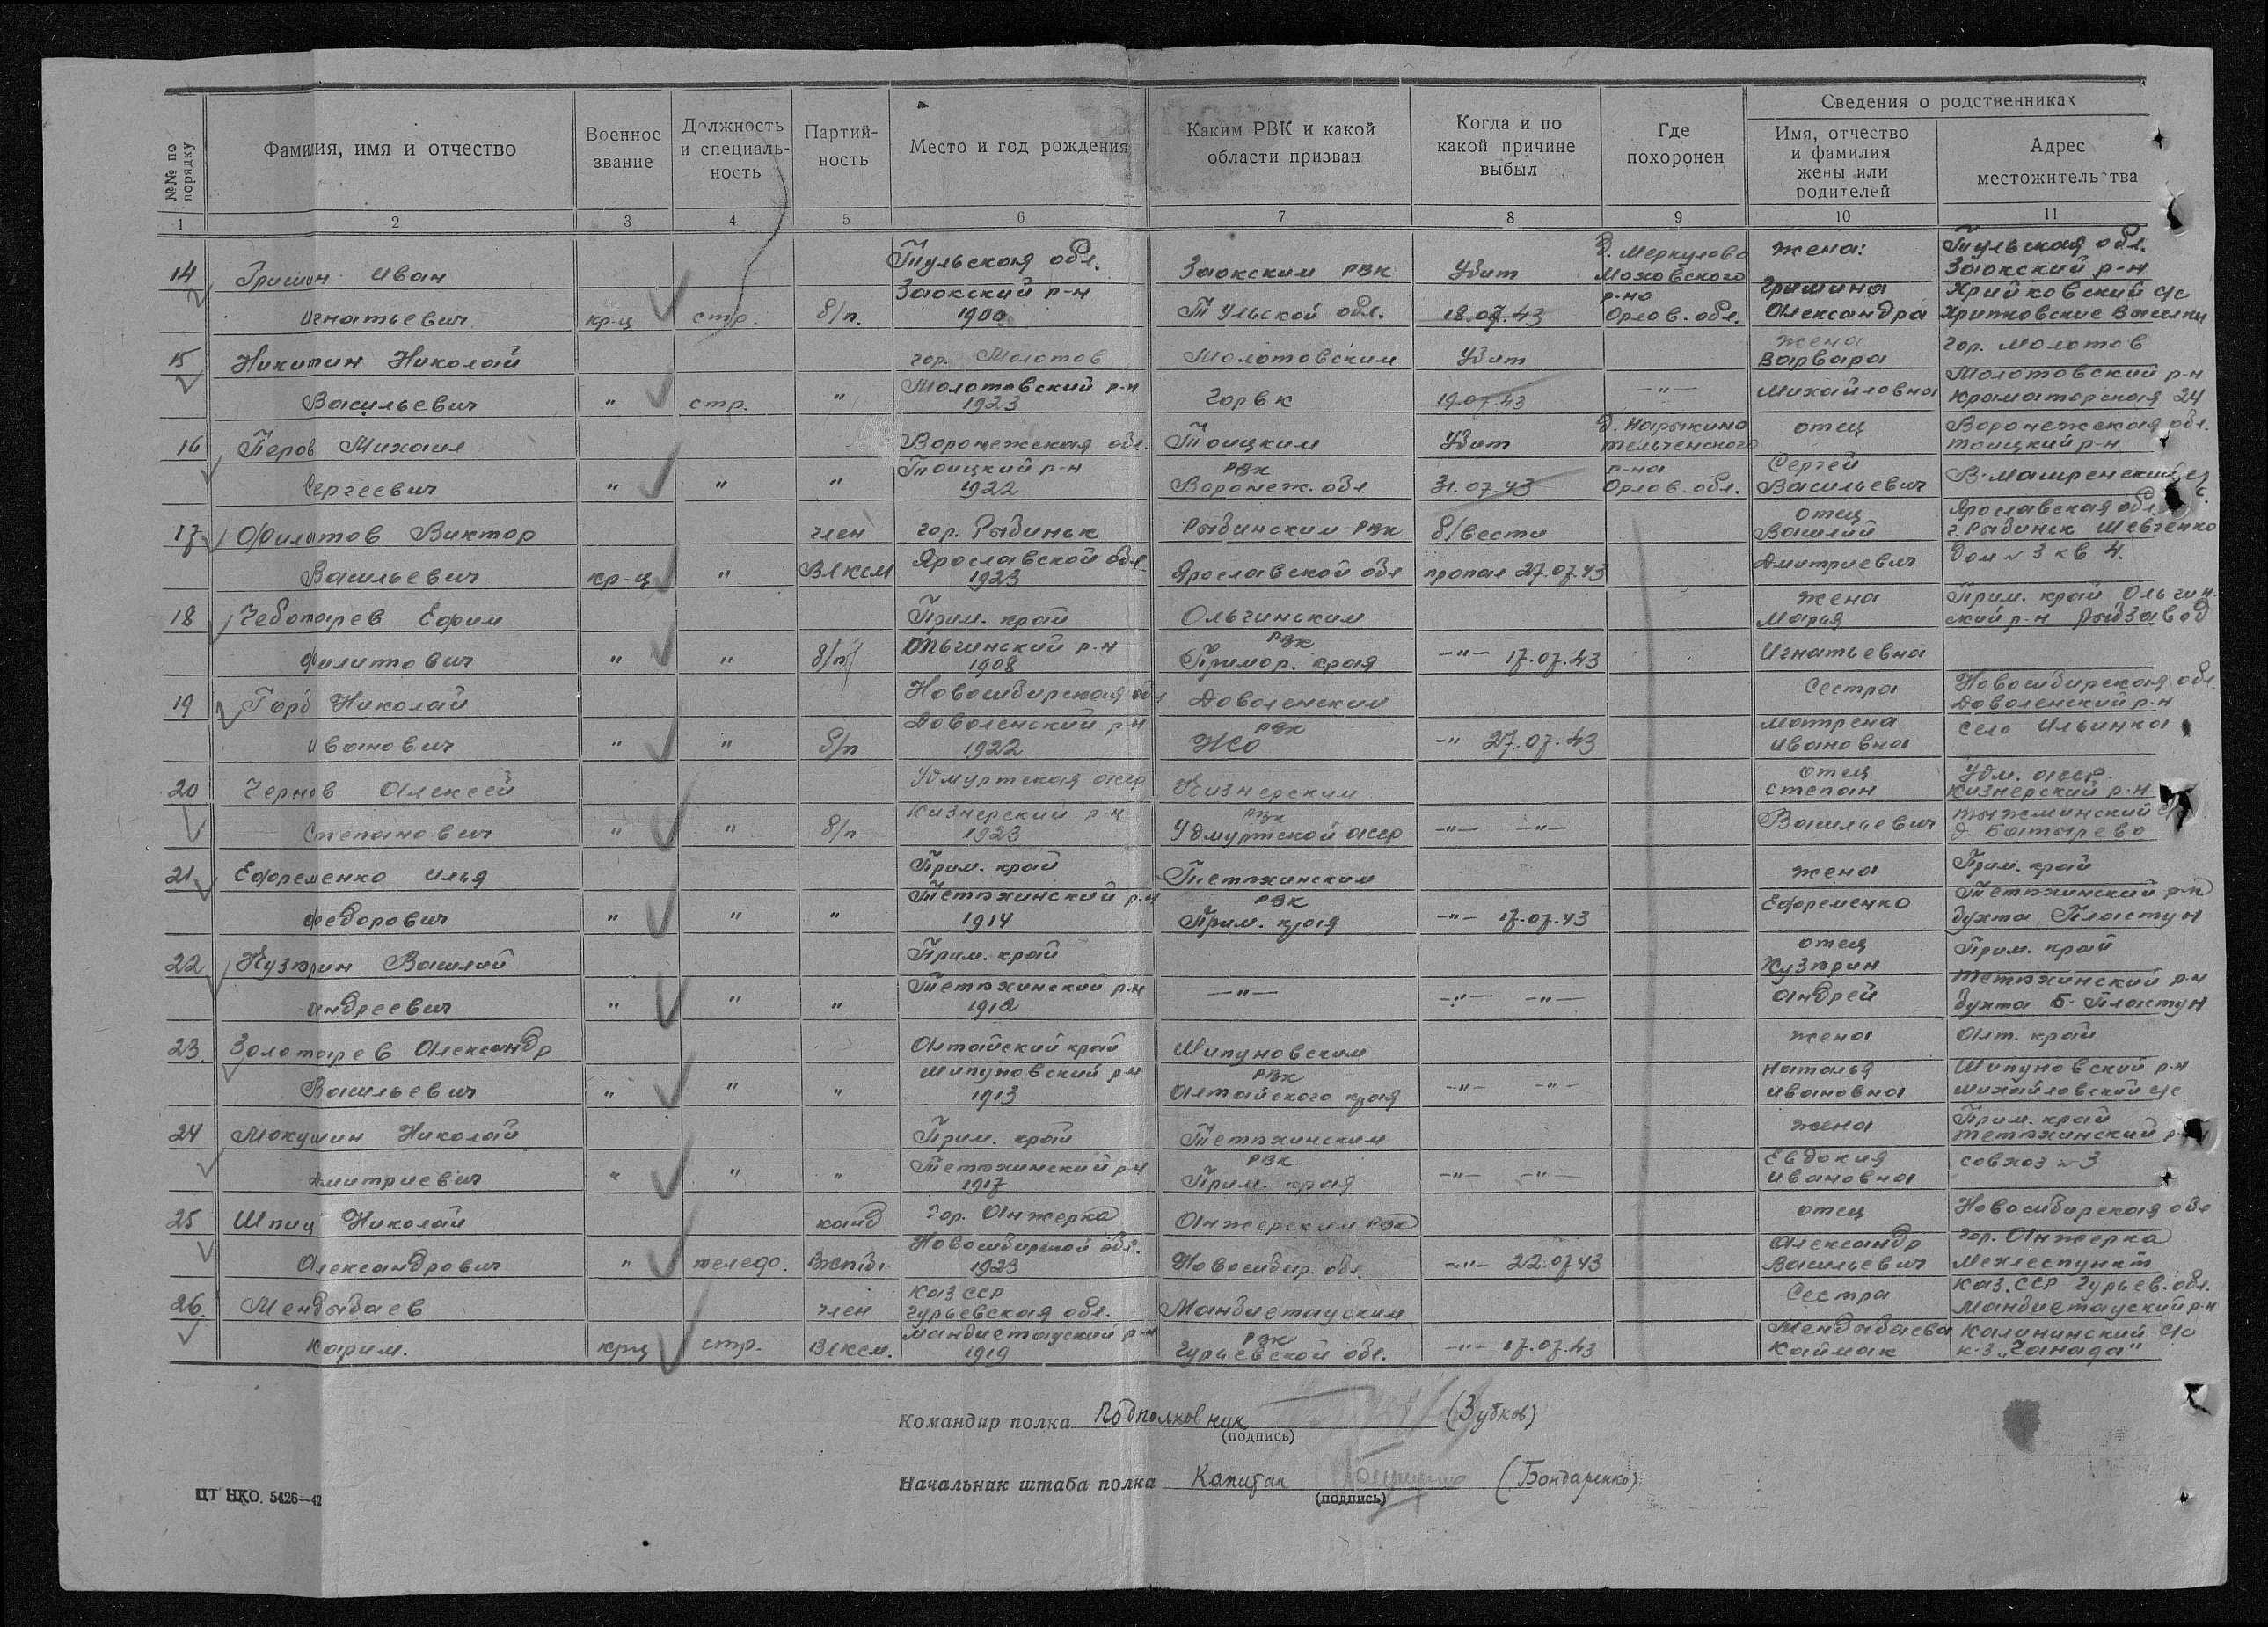 №№ по порядку
Фамилия, имя и отчество
Военное звание
Должность и специальность
Партийность
Место и год рождения
Каким РВК и какой области призван
Когда и по какой причине выбыл
Где похоронен
Сведения о родственниках
Имя, отчество и фамилия жены или родителей
Адрес местожительства
1 2 3 4 5 6 7 8 9 10 11
14 Гришин Иван Тульская обл. Заокским РВК Убит д. Меркулово Моховского жена: Тульская обл. Заокский р-н
Игнатьевич кр-ц стр. б/п. Заокский р-н 1900 Тульской обл. 18.07.43 р-на Орлов. обл. Гришина Александра Хрипковские Выселки
15 Никитин Николай гор. Молотов Молотовским Убит жена Варвара гор. Молотов
Васильевич " стр. " Молотовский р-н 1923 Горвк 19.07.43 —"— Михайловна Молотовский р-н Краматорская 24
16 Перов Михаил Воронежская обл. Тоицким Убит д. Нарыкино тельченского отец Воронежская обл. тоицкий р-н
Сергеевич " " " Тоицкий р-н 1922 РВК Воронеж. обл 31.07.43 р-на Орлов. обл. Сергей Васильевич
17 Филатов Виктор член гор. Рыбинск Рыбинским РВК б/вести отец Василий Ярославская обл. г. Рыбинск Шевченко
Васильевич кр-ц " ВЛКСМ Ярославской обл 1923 Ярославской обл пропал 27.07.43 Дмитриевич дом №3 кв 4.
18 Чеботарев Ефим Прим. край Ольгинским жена Марья Прим. край Ольгинский р-н Рыбзавод
Филитович " " б/п Ольгинский р-н 1908 РВК Примор. края —"— 17.07.43 Игнатьевна
19 Горб Николай Новосибирская обл Доволенским Сестра Новосибирская обл. Доволенский р-н
Иванович " " б/п Доволенский р-н 1922 РВК НСО —"— 27.07.43 Матрена Ивановна село Ильинка
20 Чернов Алексей Удмуртская асср Кизнерским отец Степан Удм. асср. Кизнерский р-н
Степанович " " б/п Кизнерский р-н 1923 РВК Удмуртской асср —"— —"— Васильевич д. Батырево
21 Ефременко Илья Прим. край Тетюхинским жена Прим. край
Федорович " " " Тетюхинский р-н 1914 РВК Прим. края —"— 17.07.43 Ефременко Тетюхинский р-н бухта Пластун
22 Кузюрин Василий Прим. край отец Кузюрин Прим. край
Андреевич " " " Тетюхинский р-н 1912 —"— —"— —"— Андрей Тетюхинский р-н бухта Б-Пластун
23. Золотарев Александр Алтайский край Шипуновским жена Алт. край
Васильевич " " " Шипуновский р-н 1913 РВК Алтайского края —"— —"— Наталья Ивановна Шипуновский р-н Михайловский с/с
24 Мокушин Николай Прим. край Тетюхинским жена Прим. край Тетюхинский р-н
Дмитриевич " " " Тетюхинский р-н 1917 РВК Прим. края —"— —"— Евдокия Ивановна совхоз №3
25 Шпиц Николай канд гор. Анжерка Анжерским РВК отец Новосибирская обл
Александрович " телефо. ВКП(б) Новосибирской обл. 1923 Новосибир. обл. —"— 22.07.43 Александр Васильевич гор. Анжерка Мехлеспункт
26. Мендыбаев член Каз ССР Гурьевская обл. Манбистауским Сестра Каз. ССР Гурьев. обл. Манбистауский р-н
Карим. кр-ц стр. ВЛКСМ. Манбистауский р-н 1919 РВК Гурьевской обл. —"— 17.07.43 Мендыбаева Каймак Калининский с/с к-з „Чанада"
Командир полка Подполковник (Зубков)
(подпись)
Начальник штаба полка Капитан (Бондаренко)
(подпись)
ЦТ НКО. 5426—42